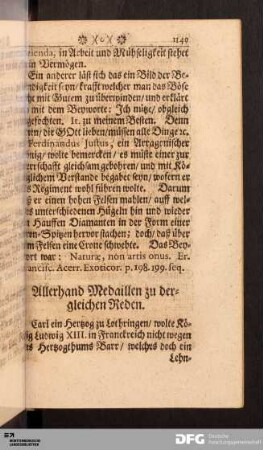 1140
cienda, in Arbeit und Mühseligkeit stehet
in Vermögen.
Ein anderer läst sich das ein Bild der Be-
ndigkeit seyn/ krafft welcher man das Böse
mit Gutem zu überwinden/ und erklärt
mit dem Beyworte: Ich nütz/ obgleich
gefochten. It. zu meinem Besten. Denn
en, die GOtt lieben/ müssen alle Dinge ꝛc.
Ferdinandus Justus, ein Arragonischer
nig/ wolte bemercken/ es müste einer zur
errschafft gleichsam gebohren/ und mit Kö-
glichem Verstande begabet seyn/ wofern er
s Regiment wohl führen wolte. Darum
ß er einen hohen Felsen mahlen/ auff wel-
es unterschiedenen Hügeln hin und wieder
Hauffen Diamanten in der Form einer
n-Spitzen hervor stachen; doch/ daß über
m Felsen eine Crone schwebte. Das Bey-
ort war: Naturæ, non artis onus. Er.
ancisc. Acerr. Exoticor. p. 198. 199. seq.
Allerhand Medaillen zu der-
gleichen Reden.
Carl ein Hertzog zu Lothringen/ wolte Kö-
g Ludwig XIII. in Franckreich nicht wegen
s Hertzogthums Barr/ welches doch ein
Lehn-
DFG Deutsche
Forschungsgemeinschaft